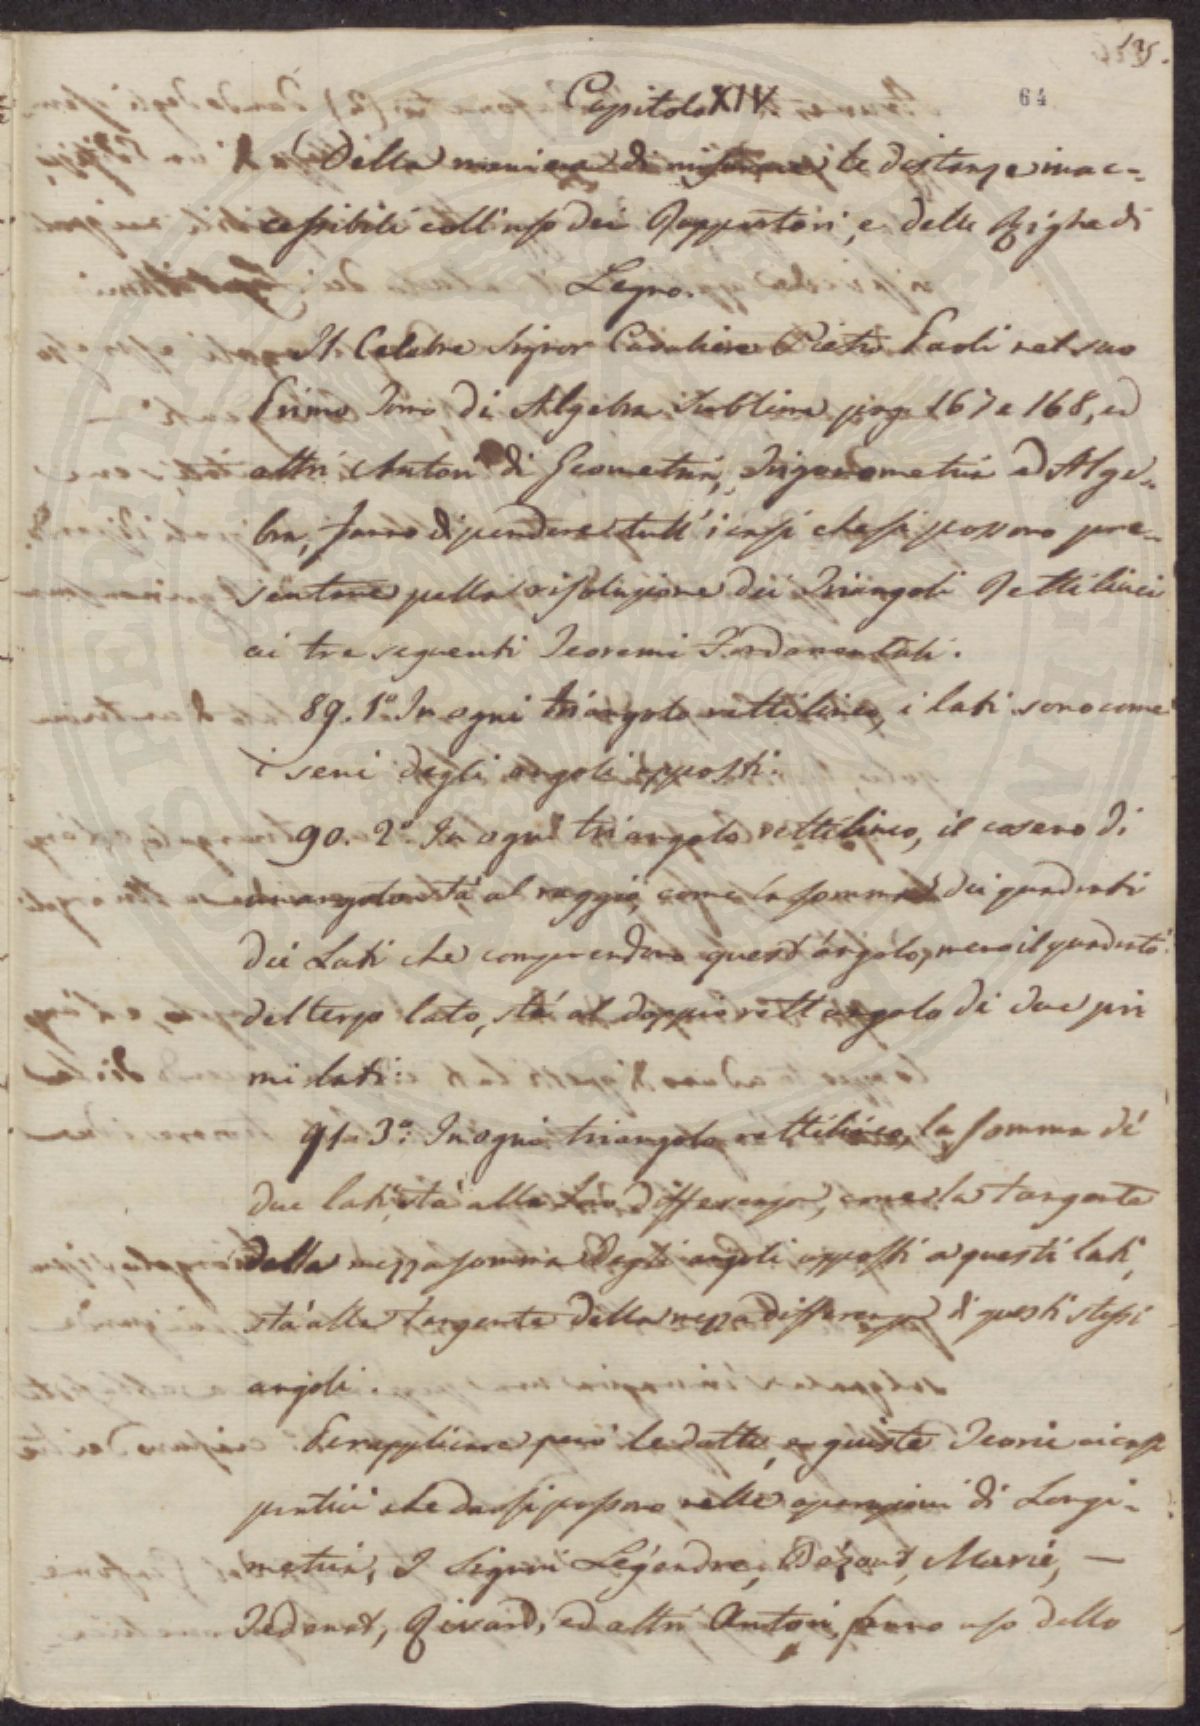 135.
64
Capitolo XIV.
Della maniera di misurare le distanze inac=
cessibili coll'uso dei Rapportatori, e delle Righe di
Legno.
Il Celebre Signor Cavaliere Pietro Paoli nel suo
Primo Tomo di Algebra Sublime pag. 167 e 168, ed
altri Autori di Geometria, Trigonometria ed Alge=
bra, fanno dipendere tutt'i casi che si possono pre=
sentare pella risoluzione dei Triangoli Rettilinei
ai tre seguenti Teoremi Fondamentali.
89. 1.º In ogni triangolo rettilineo, i lati sono come
i seni degli angoli opposti.
90. 2.º In ogni triangolo rettilineo, il coseno di
un angolo stà al raggio, come la somma dei quadrati
dei Lati che comprendono quest'angolo, meno il quadrato
del terzo lato, stà al doppio rettangolo di due pri
mi lati.
91. 3.º: In ogni triangolo rettilineo, la somma di
due lati, stà alla loro differenza, come la tangente
della mezza somma degli angoli opposti a questi lati,
stà alla tangente della mezza differenza di questi stessi
angoli.
Per applicare però le dotte, e giuste Teorie ai casi
pratici che dar si possono nelle operazioni di Longi=
metria, I Signori Legendre, Bézout, Marie, —
Tedenat, Rivard, ed altri Autori, fanno uso dello